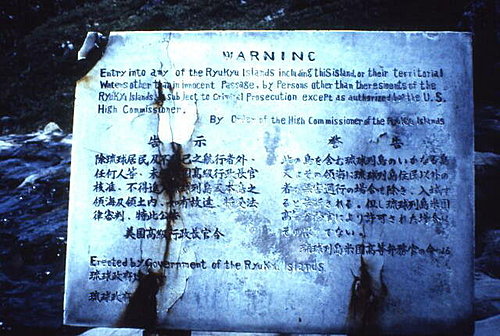 WARNING
Entry into any of the Ryukyu Islands including this island or their territorial
Waters other than in innocent Passage, by Persons other than the residents of the
Ryukyu Islands is subject to Criminal Prosecution except as authorized by the U.S.
High Commissioner.
By Order of the High Commissioner of the Ryukyu Islands
告 示
除琉球居民及不 己之航行者外、
任何人等、未 高級行政長官
核准、不得進 列島及本島之
領海及領土內、 有故違、 法
律審判、特此公 
美国高 行政長官令
警 告
此の島を含む琉球列島のいかなる島
又はその領海に琉球列島住民以外の
者が 害通行の場合を除き、入域す
ると される。但し琉球列島米国
高等 により許可された場合は
 てない。
琉球列島米国高等弁務官の命による
Erected by Government of the Ryukyu Islands
琉球政府
琉球政府